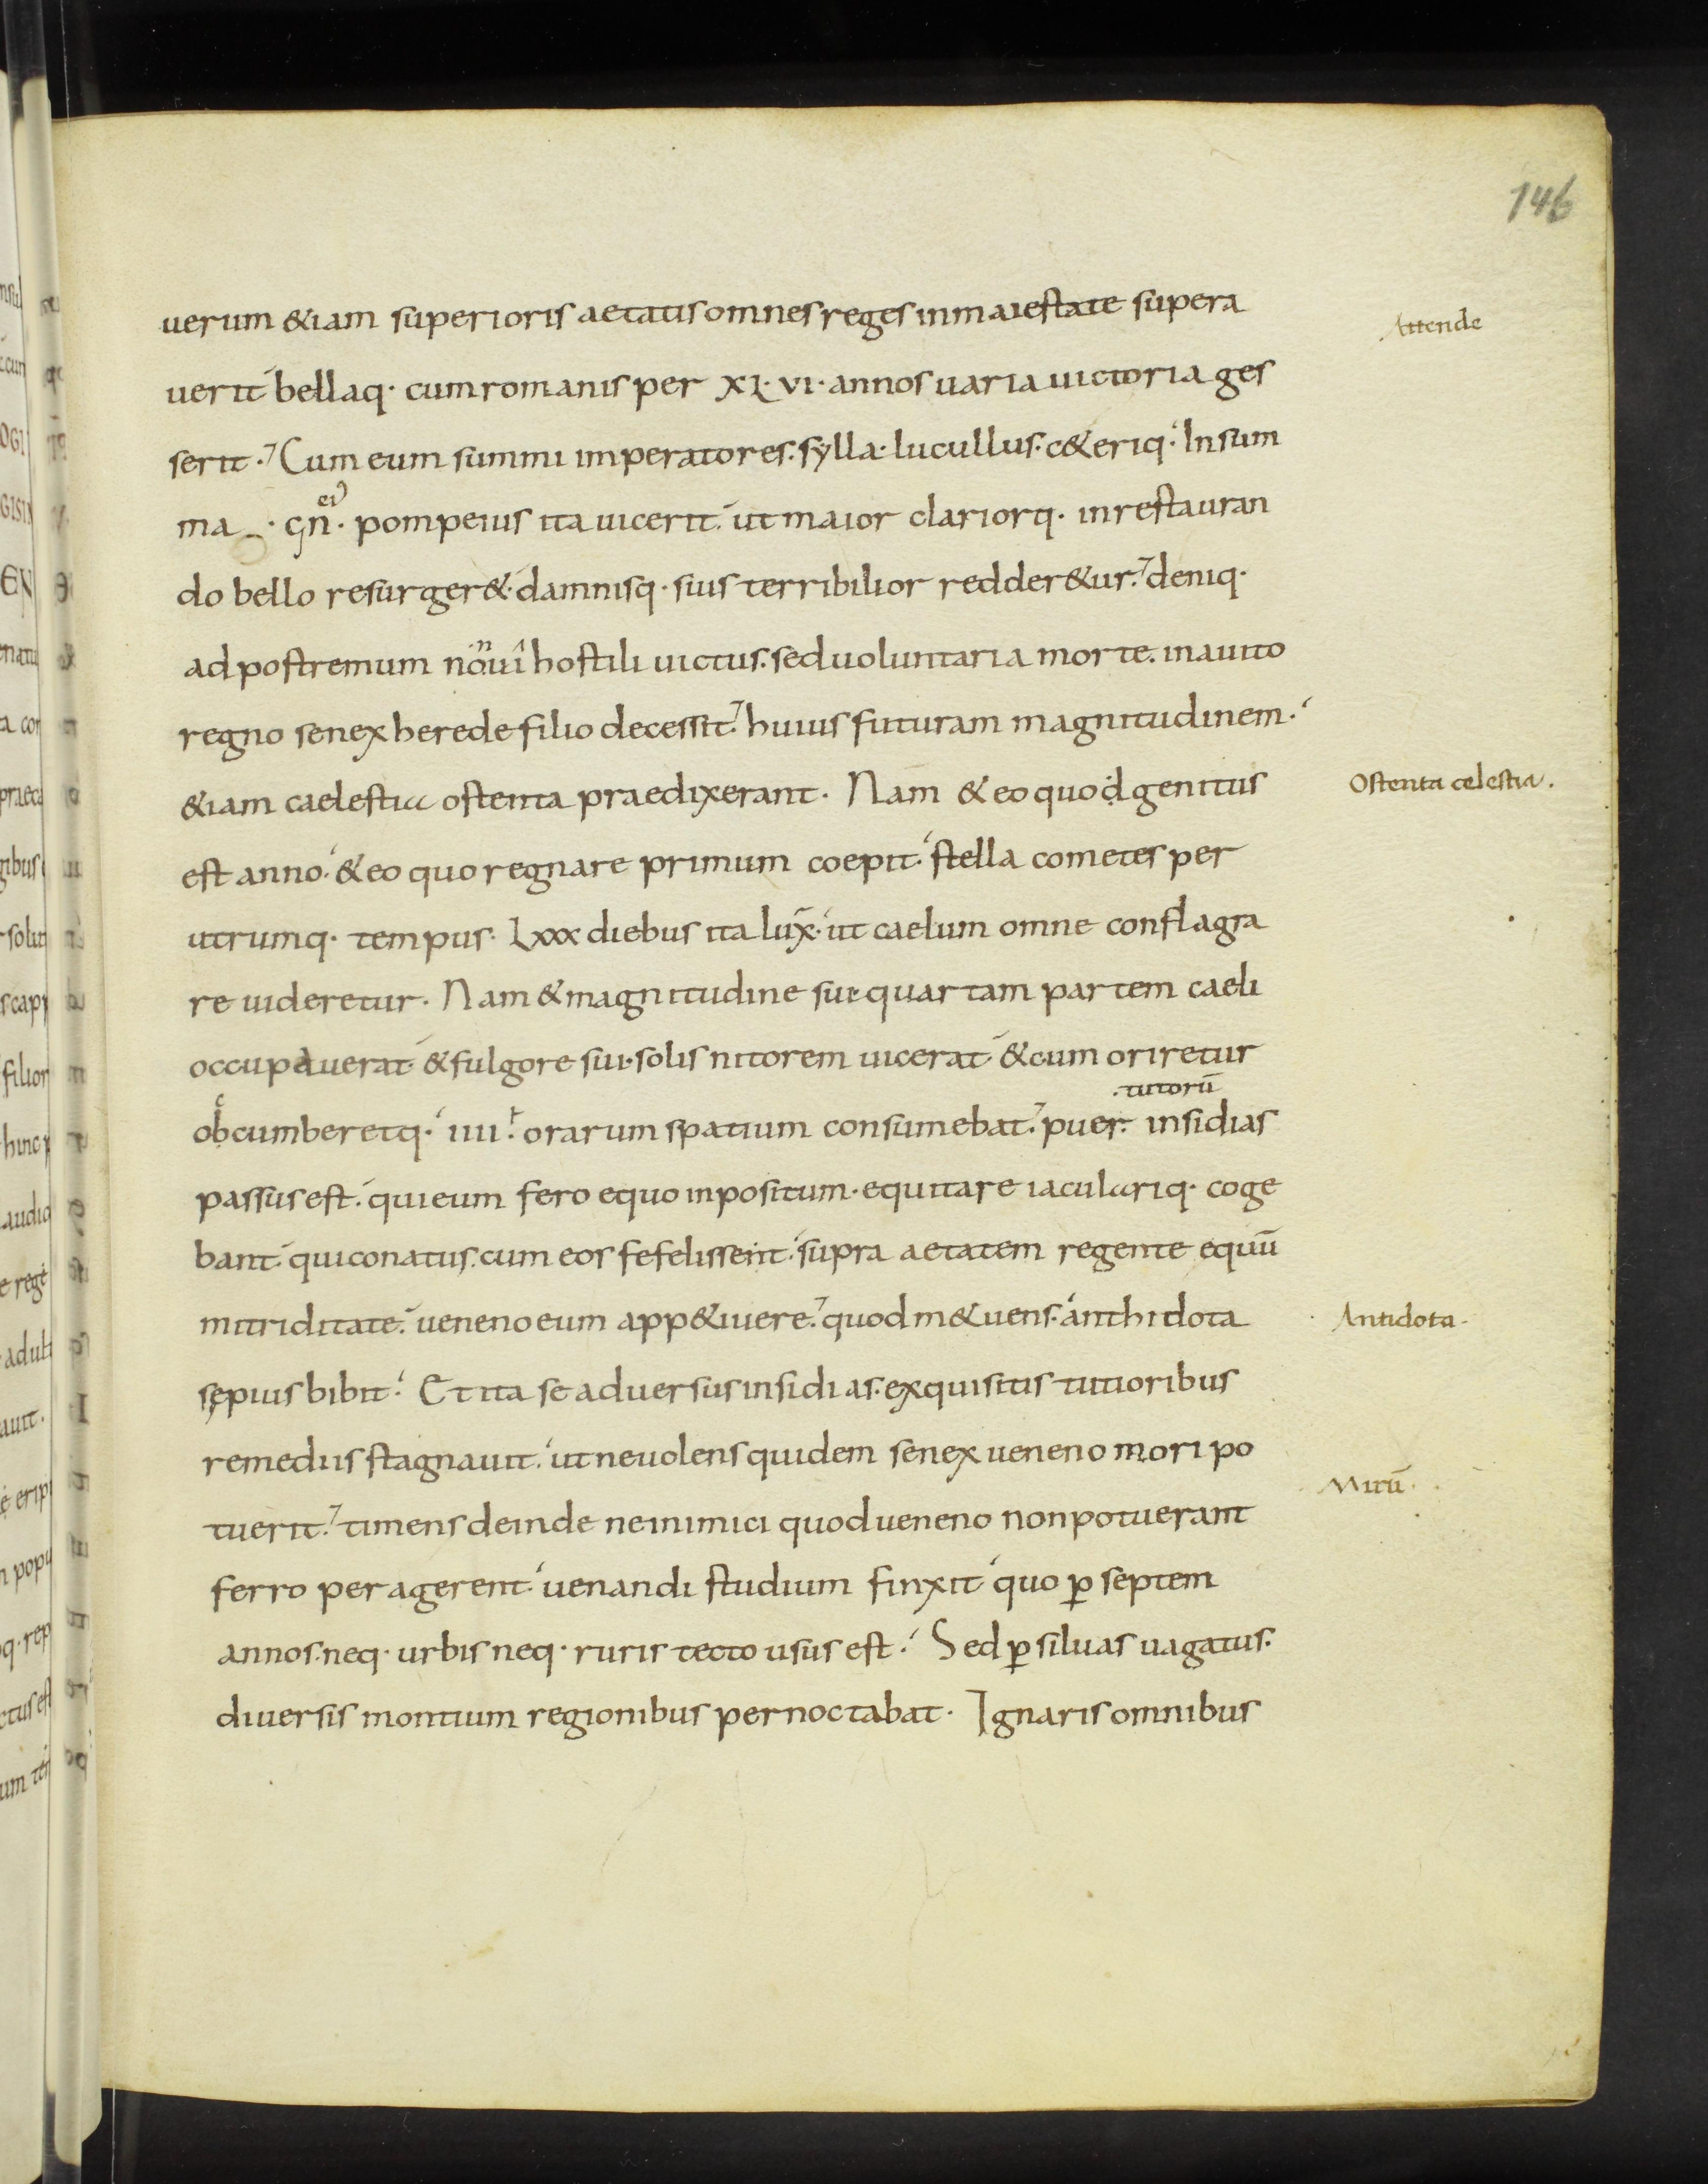 146
uerum &iam superioris aetatis omnes reges in maiestate supera
Attende
uerit bellaq· cum romanis per XL·VI· annos uaria uictoria ges
serit· Cum eum summi imperatores· sylla· lucullus· c&eriq· In sum
ma · gn̄· pompeius ita uicerit· ut maior clariorq· in restauran
do bello resurger&· damnisq· suis terribilior redder&ur· deniq·
ad postremum non ui hostili uictus· sed uoluntaria morte· in auito
regno senex herede filio decessit· huius futuram magnitudinem·
&iam caelestia ostenta praedixerant· Nam & eo quod genitus
Ostenta celestia·
est anno· & eo quo regnare primum coepit· stella cometes per
utrumq· tempus· Lxxx diebus ita lux̄· ut caelum omne conflagra
re uideretur· Nam & magnitudine sui quartam partem caeli
occupauerat· & fulgore sui· solis nitorem uicerat· & cum oriretur
·tutorū
obcumberetq· IIII· orarum spatium consumebat· puer· insidias
passus est· qui eum fero equo inpositum· equitare iaculariq· coge
bant· qui conatus· cum eos fefelissent· supra aetatem regente equū
mitriditate· ueneno eum app&iuere· quod m&uens· anthidota
Antidota·
sępius bibit· Et ita se aduersus insidias· exquisitis tutioribus
remediis stagnauit· ut ne uolens quidem senex ueneno mori po
Mirū·
tuerit· timens deinde ne inimici quod ueneno non potuerant
ferro peragerent· uenandi studium finxit· quo p̲ septem
annos· neq· urbis neq· ruris tecto usus est· Sed p̲ siluas uagatus·
diuersis montium regionibus pernoctabat· Ignaris omnibus